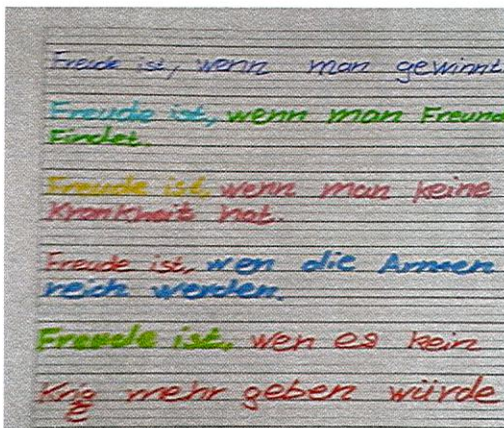 Freude ist, wenn man gewinnt
Freude ist, wenn man Freund
Findet.
Freude ist, wenn man keine
Krankheit hat.
Freude ist, wen die Armen
reich werden.
Freude ist, wen es kein
Krig mehr geben würde
e